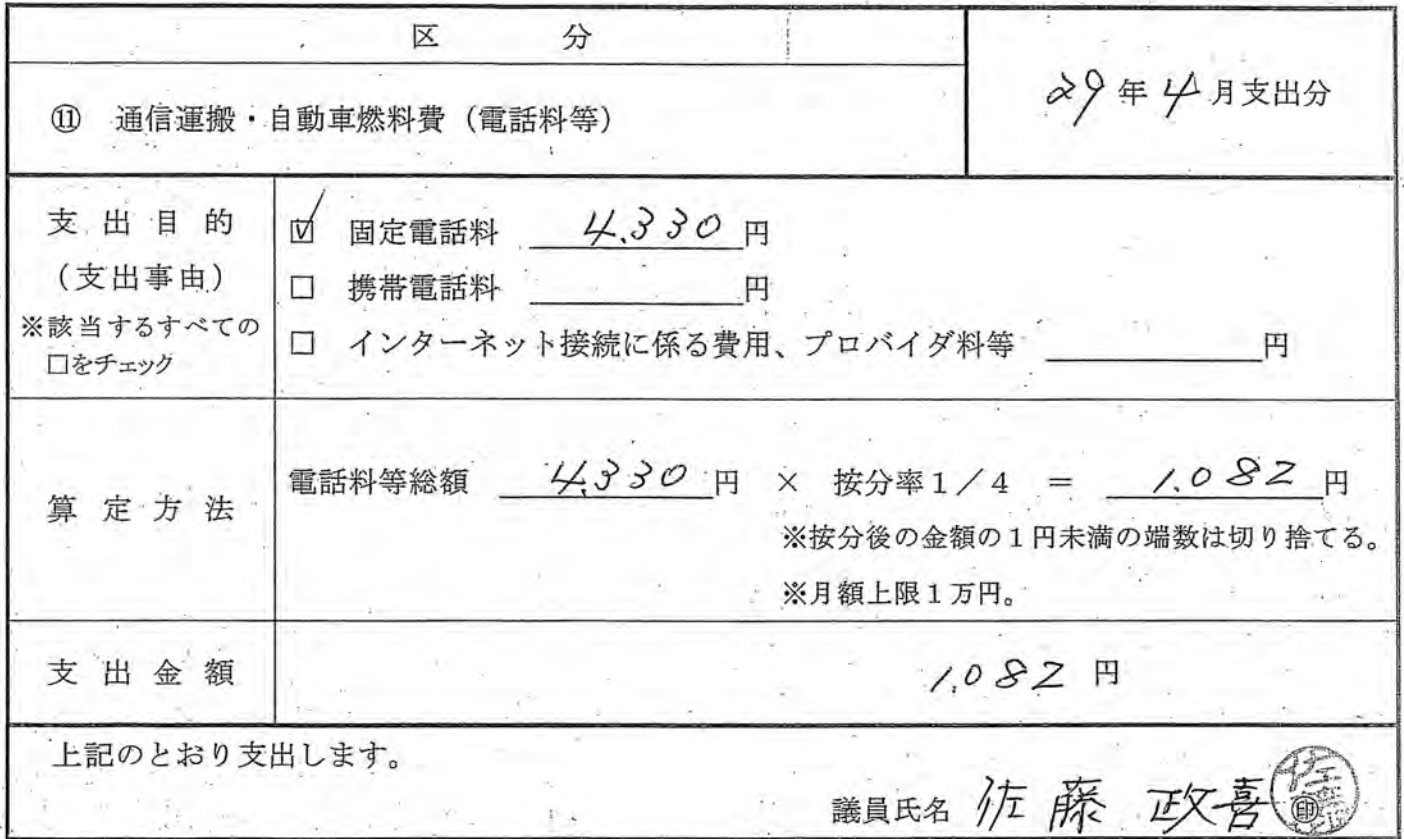 区 分
29年4月支出分
⑪ 通信運搬・自動車燃料費（電話料等）
支出目的
（支出事由）
※該当するすべての
□をチェック
☑ 固定電話料 4,330円
□ 携帯電話料 円
□ インターネット接続に係る費用、プロバイダ料等 円
算定方法
電話料等総額 4,330円 × 按分率1／4 ＝ 1,082円
※按分後の金額の1円未満の端数は切り捨てる。
※月額上限1万円。
支出金額
1,082円
上記のとおり支出します。
議員氏名 佐藤 政喜 ㊞